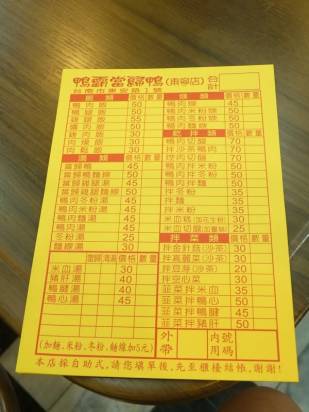 鴨霸當歸鴨(東寧店) 合計
台南市東寧路1號
飯類 價格 數量
鴨肉飯 50
鴨腿飯
雞腿飯 55
爌肉飯 50
肉燥飯 30
肉鬆飯 30
湯類 價格 數量
當歸鴨麵線 50
當歸雞腿湯
當歸雞腿麵線
鴨肉冬粉湯 45
鴨肉米粉湯 45
鴨肉麵湯 45
鴨肉湯 45
冬粉湯 25
麵線湯 30
當歸清湯 價格 數量
米血湯 30
豬肝湯 40
鴨腱湯 40
鴨心湯 45
(加麵、米粉、冬粉、麵線加5元)
價格 數量
鴨肉羹 45
鴨肉米粉羹 50
鴨肉冬粉羹 50
鴨肉麵羹 50
乾拌類 價格 數量
鴨肉切盤 70
拌沙茶鴨肉 70
鴨肉拌冬粉 50
鴨肉拌米粉 50
鴨肉拌麵 50
拌冬粉 35
拌麵 35
拌米粉 35
米血糕(加花生粉) 30
米血切盤(加薑絲) 25
拌菜類 價格 數量
拌金針菇(沙茶) 30
拌高麗菜(沙茶) 30
拌豆芽(沙茶) 20
拌空心菜 30
韮菜拌米血 35
韮菜拌鴨心 50
韮菜拌鴨腱 45
韮菜拌豬肝 50
外帶 內用 號碼
本店採自助式，請您填單後，先至櫃檯結帳，謝謝！